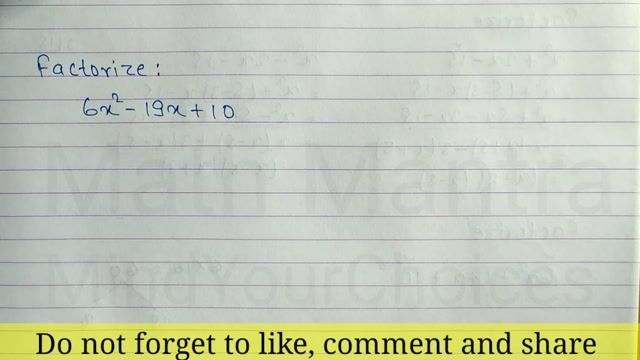 Factorize:
6x² - 19x + 10
Math Mantra
MindYourChoices
Do not forget to like, comment and share